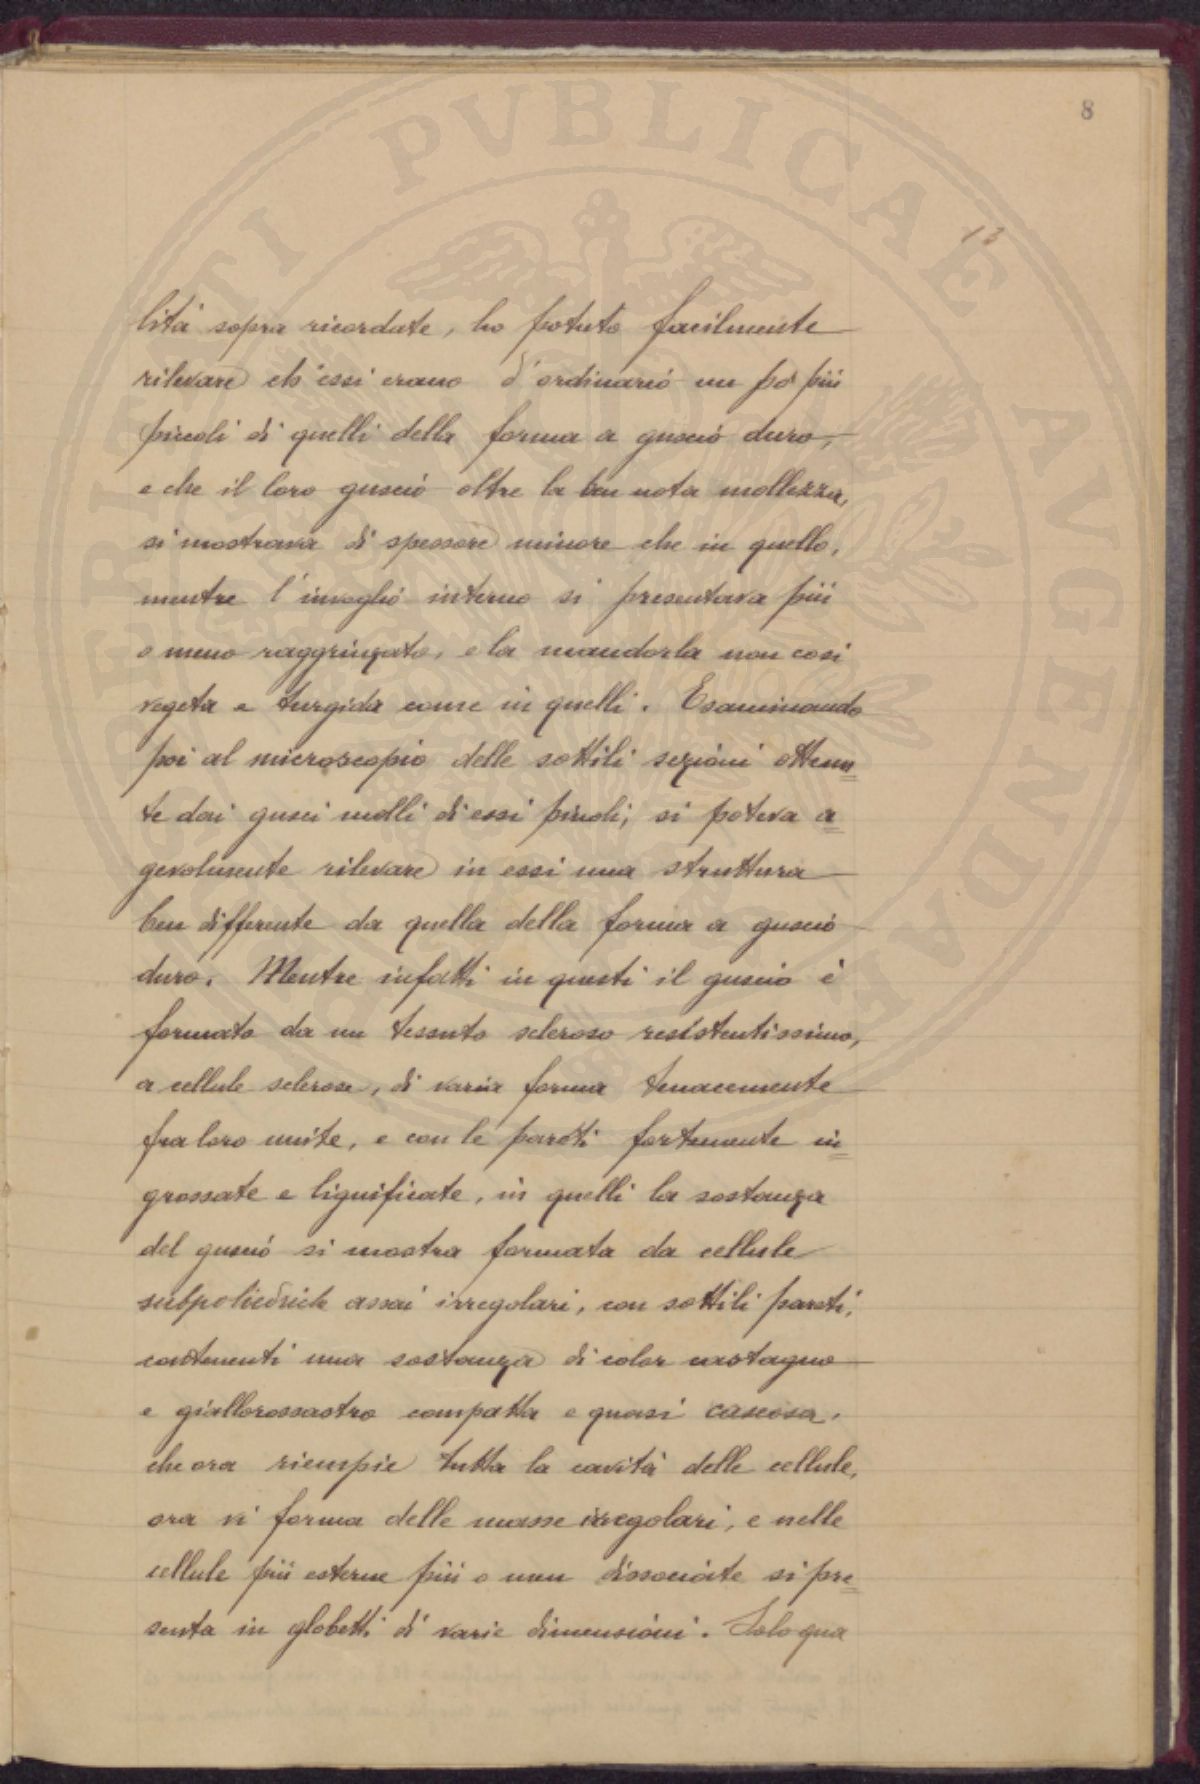 8
13
lità sopra ricordate, ho potuto facilmente
rilevare ch'essi erano d'ordinario un po' più
piccoli di quelli della forma a guscio duro,
e che il loro guscio oltre la ben nota mollezza,
si mostrava di spessore minore che in quello,
mentre l'invoglio interno si presentava più
o meno raggrinzato, e la mandorla non così
vegeta e turgida come in quelli. Esaminando
poi al microscopio delle sottili sezioni ottenu=
te dai gusci molli di essi piccoli, si poteva a=
gevolmente rilevare in essi una struttura
ben differente da quella della forma a guscio
duro. Mentre infatti in questi il guscio è
formato da un tessuto scleroso resistentissimo,
a cellule sclerose, di varia forma tenacemente
fra loro unite, e con le pareti fortemente in=
grossate e lignificate, in quelli la sostanza
del guscio si mostra formata da cellule
subpoliedriche assai irregolari, con sottili pareti,
contenenti una sostanza di color castagno
e giallorossastro compatta e quasi caseosa,
che ora riempie tutta la cavità delle cellule,
ora vi forma delle masse irregolari, e nelle
cellule più esterne più o men dissociate si pre=
senta in globetti di varie dimensioni. Solo qua
PVBLICAE AVGENDAE